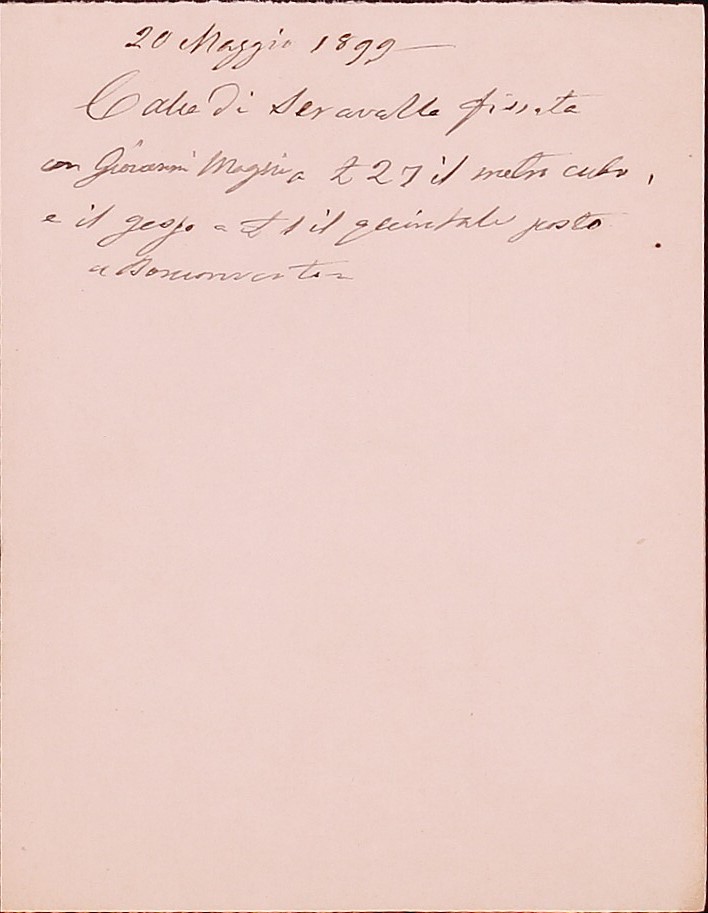 20 Maggio 1899 —
Calce di Seravalle fissata
con Giovanni Magini a £ 27 il metro cubo,
e il gesso a £ 1 il quintale posto
a Bonconvento